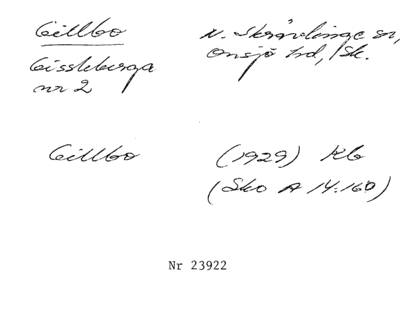 Gillbo N. Skrävlinge sn,
Gissleberga Onsjö hd, Sk.
nr 2
Gillbo (1929) Kb
(Sko A 14:160)
Nr 23922